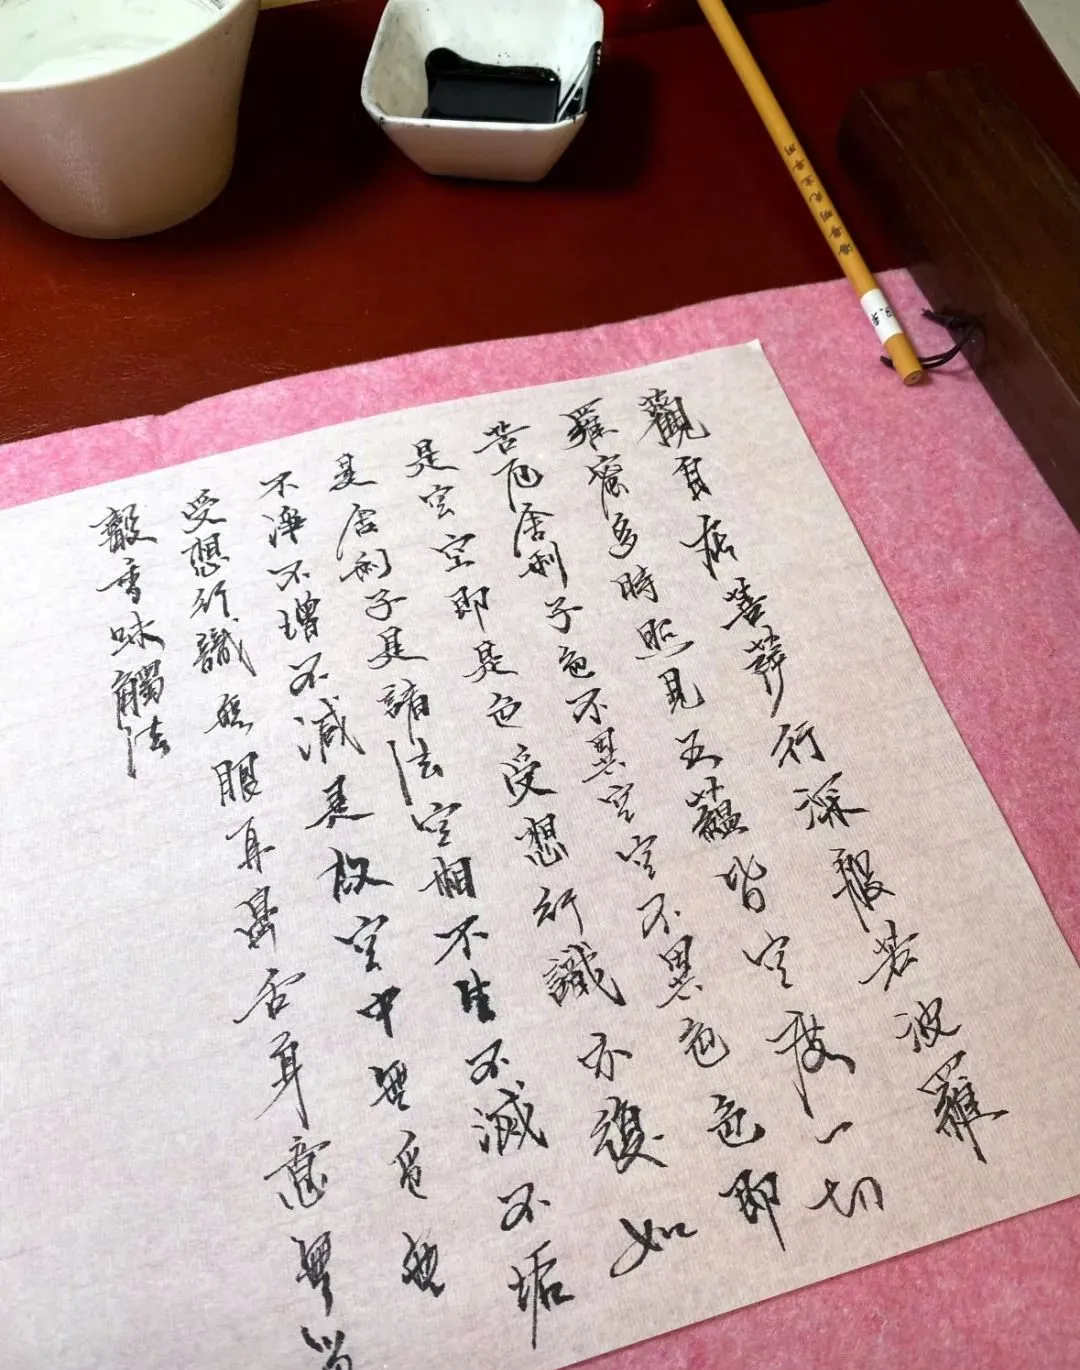 觀自在菩薩行深般若波羅
羅蜜多時照見五蘊皆空度一切
苦厄舍利子色不異空空不異色色即
是空空即是色受想行識亦復如
是舍利子是諸法空相不生不滅不垢
不淨不增不減是故空中無色無
受想行識無眼耳鼻舌身意無
聲香味觸法